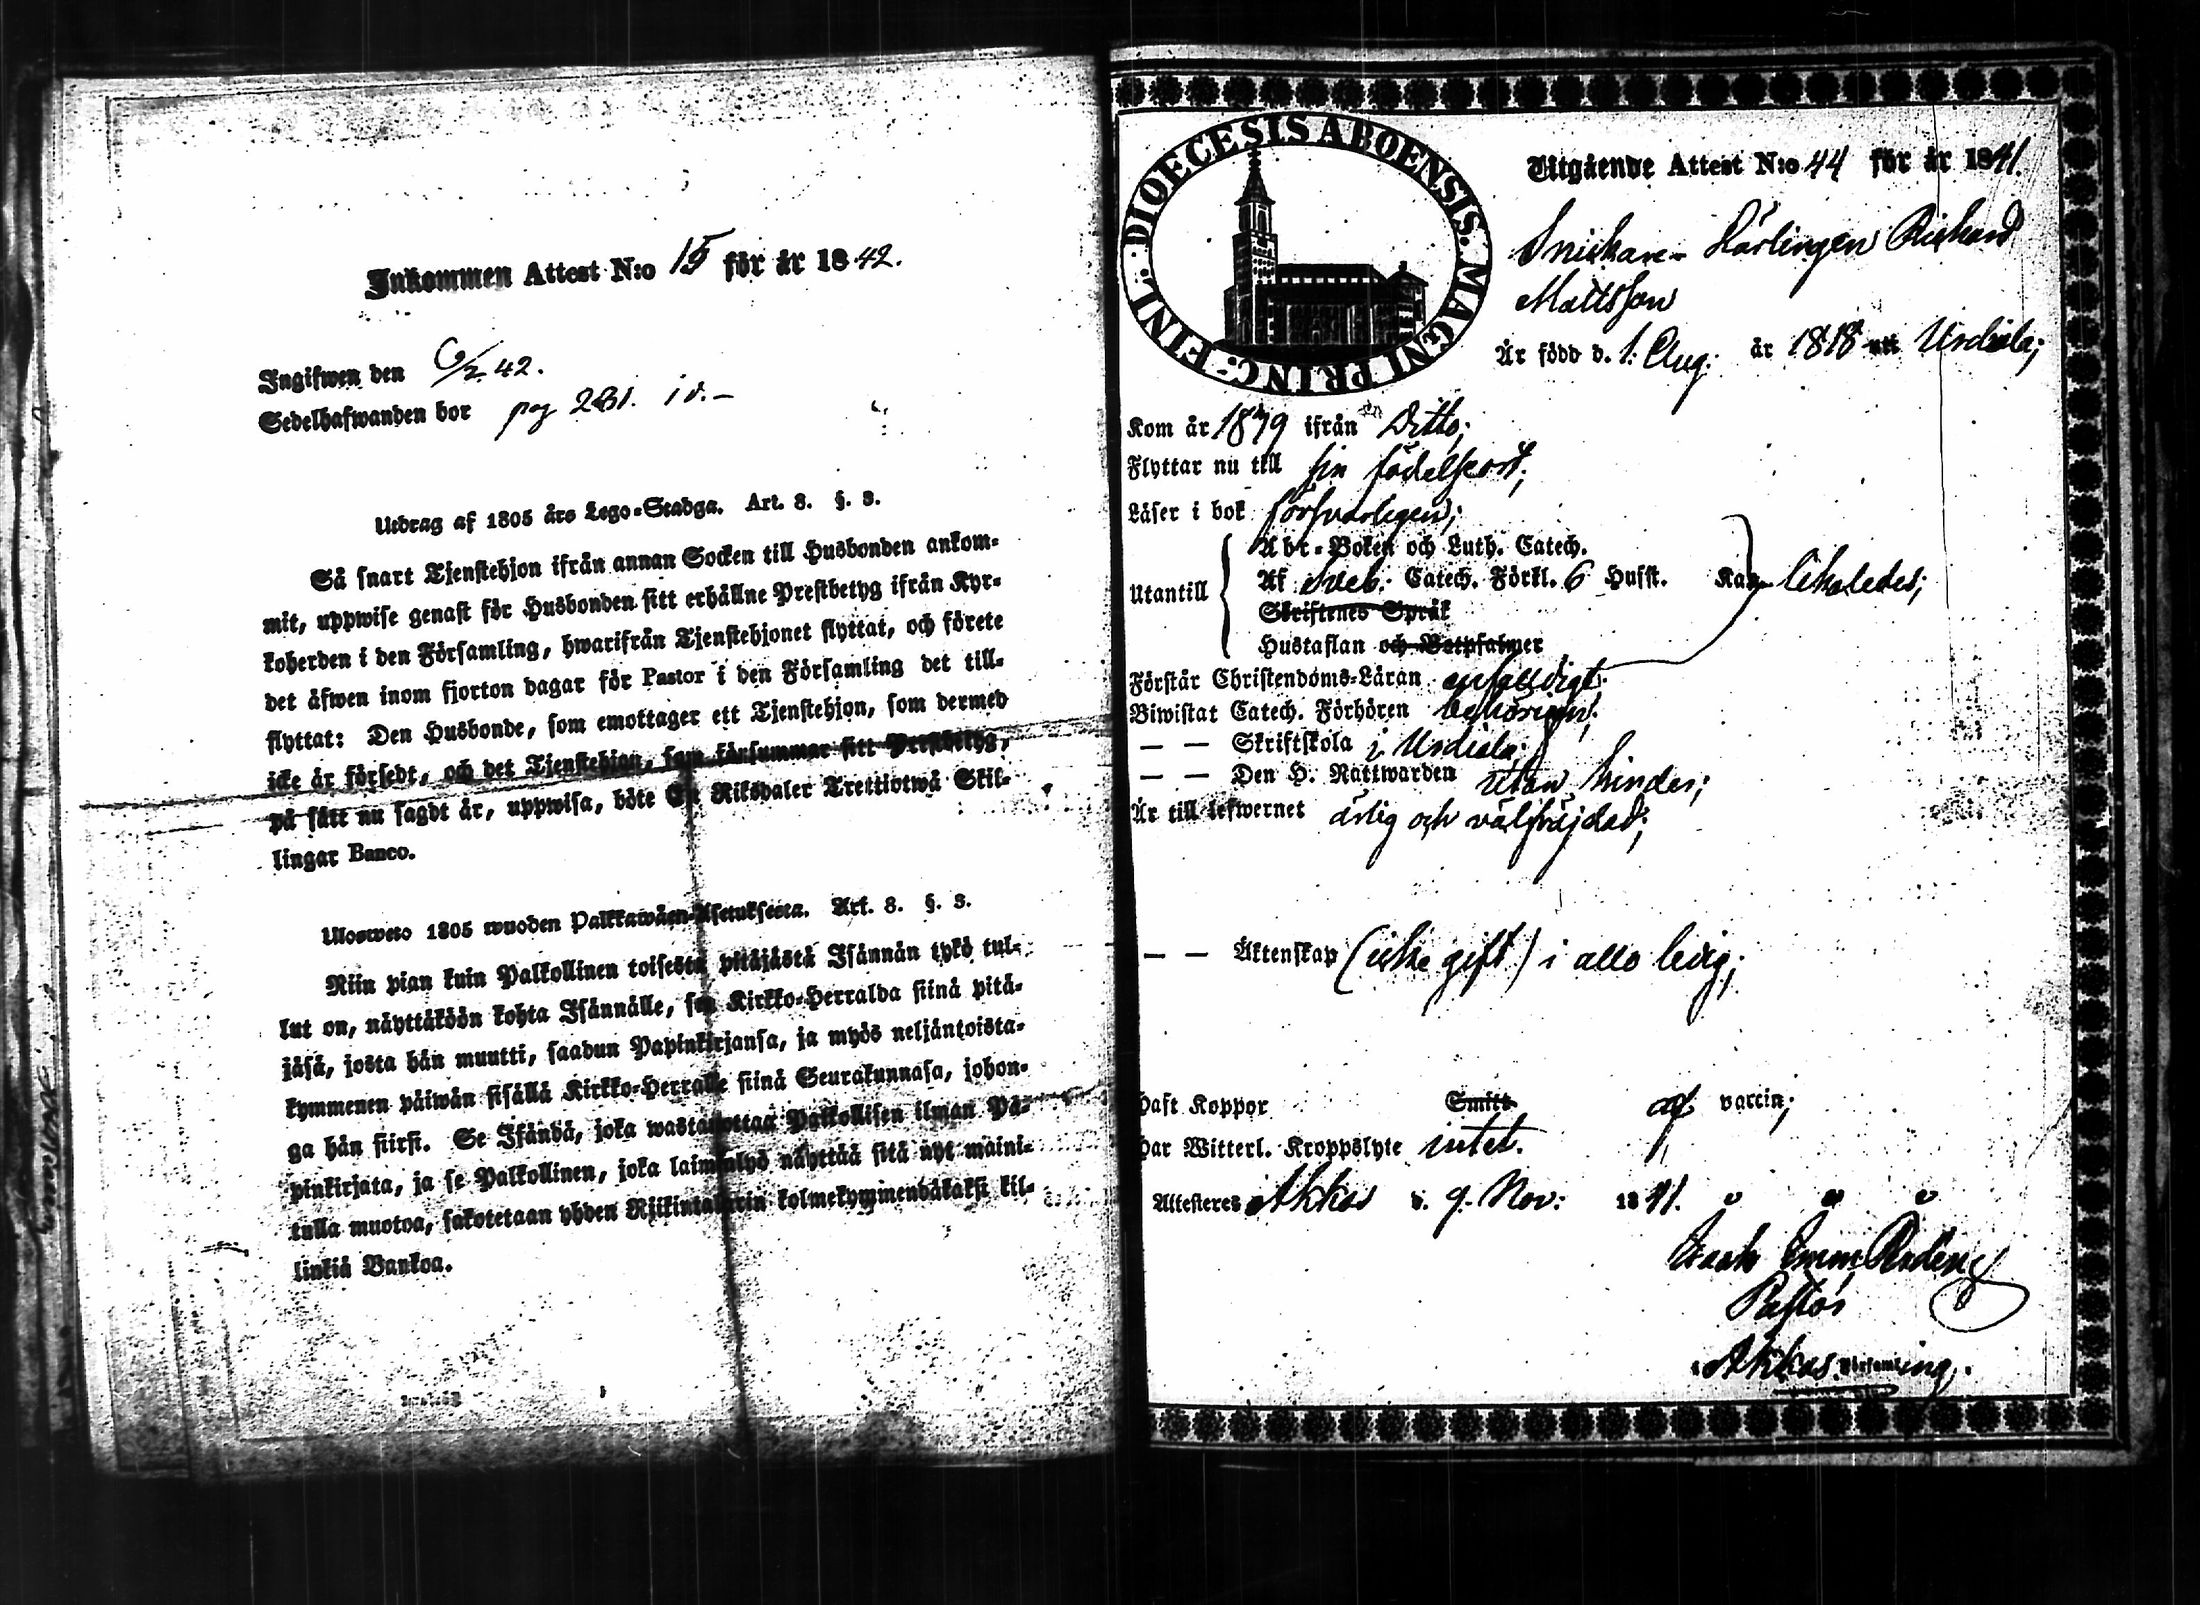 Inkommen Attest N:o 15 för år 1842.
Ingifwen den 6/2 42.
Sedelhafwanden bor pag 281. i v. –
Utdrag af 1805 års Lego-Stadga. Art. 8. §. 3.
Så snart Tjenstehjon ifrån annan Socken till Husbonden ankom-
mit, uppwise genast för Husbonden sitt erhållne Prestbetyg ifrån Kyr-
koherden i den Församling, hwarifrån Tjenstehjonet flyttat, och förete
det äfwen inom fjorton dagar för Pastor i den Församling det till-
flyttat: Den Husbonde, som emottager ett Tjenstehjon, som dermed
icke är försedt, och det Tjenstehjon, som försummar sitt Prestbetyg,
på sätt nu sagdt är, uppwisa, böte En Riksdaler Trettiotwå Skil-
lingar Banco.
Ulosweto 1805 wuoden Palkkawäen-Asetuksesta. Art. 8. §. 3.
Niin pian kuin Palkollinen toisesta pitäjästä Isännän tykö tul-
lut on, näyttäköön kohta Isännälle, sen Kirkko-Herralda siinä pitä-
jäsä, josta hän muutti, saadun Papinkirjansa, ja myös neljäntoista-
kymmenen päiwän sisällä Kirkko-Herralle siinä Seurakunnasa, johon-
ga hän siirsi. Se Isändä, joka wastanottaa Palkollisen ilman Pa-
pinkirjata, ja se Palkollinen, joka laiminlyö näyttää sitä nyt maini-
tulla muotoa, sakotetaan yhden Riikintalarin kolmekymmendäkaksi kil-
linkiä Bankoa.
DIOECESIS ABOENSIS. MAGNI PRINC: FINL.
Utgående Attest N:o 44 för år 1841.
Snickare- Lärlingen Richard
Mattsson
Är född d. 1. Aug: år 1818 uti Urdiala;
Kom år 1839 ifrån Ditto;
Flyttar nu till sin födelseort;
Läser i bok försvarligen;
Utantill
Abc-Boken och Luth. Catech.
Af Sveb. Catech. Förkl. 6 Husst. Kan likaledes;
Skriftenes Språk
Hustaflan och Botpsalmer
Förstår Christendoms-Läran enfaldigt;
Biwistat Catech. Förhören behörigen;
— — Skriftskola i Urdiala;
— — Den H. Nattwarden utan hinder;
Är till lefwernet ärlig och välfräjdad;
— — Äktenskap (icke gift) i allo ledig;
Haft Koppor Smitt af vaccin;
Har Witterl. Kroppslyte intet.
Attesteres Akkas d. 9. Nov: 1841.
Isaak Emm
Pastor
i Akkas Församling.